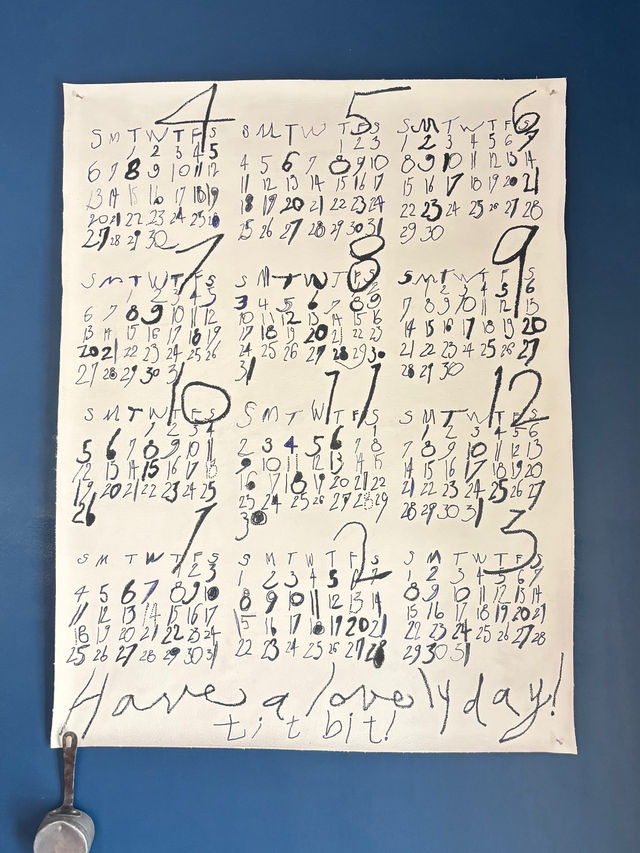 4
S M T W T F S
1 2 3 4 5
6 7 8 9 10 11 12
13 14 15 16 17 18 19
20 21 22 23 24 25 26
27 28 29 30
5
S M T W T F S
1 2 3
4 5 6 7 8 9 10
11 12 13 14 15 16 17
18 19 20 21 22 23 24
25 26 27 28 29 30 31
6
S M T W T F S
1 2 3 4 5 6 7
8 9 10 11 12 13 14
15 16 17 18 19 20 21
22 23 24 25 26 27 28
29 30
7
S M T W T F S
1 2 3 4 5
6 7 8 9 10 11 12
13 14 15 16 17 18 19
20 21 22 23 24 25 26
27 28 29 30 31
8
S M T W T F S
1 2
3 4 5 6 7 8 9
10 11 12 13 14 15 16
17 18 19 20 21 22 23
24 25 26 27 28 29 30
31
9
S M T W T F S
1 2 3 4 5 6
7 8 9 10 11 12 13
14 15 16 17 18 19 20
21 22 23 24 25 26 27
28 29 30
10
S M T W T F S
1 2 3 4
5 6 7 8 9 10 11
12 13 14 15 16 17 18
19 20 21 22 23 24 25
26
11
S M T W T F S
1
2 3 4 5 6 7 8
10 11 12 13 14 15
17 18 19 20 21 22
23 24 25 26 27 28 29
30
12
S M T W T F S
1 2 3 4 5 6
7 8 9 10 11 12 13
14 15 16 17 18 19 20
21 22 23 24 25 26 27
28 29 30 31
1
S M T W T F S
1 2 3
4 5 6 7 8 9 10
11 12 13 14 15 16 17
18 19 20 21 22 23 24
25 26 27 28 29 30 31
2
S M T W T F S
1 2 3 4 5 6 7
8 9 10 11 12 13 14
15 16 17 18 19 20 21
22 23 24 25 26 27 28
3
S M T W T F S
1 2 3 4 5 6 7
8 9 10 11 12 13 14
15 16 17 18 19 20 21
22 23 24 25 26 27 28
29 30 31
Have a lovely day!
tit bit!